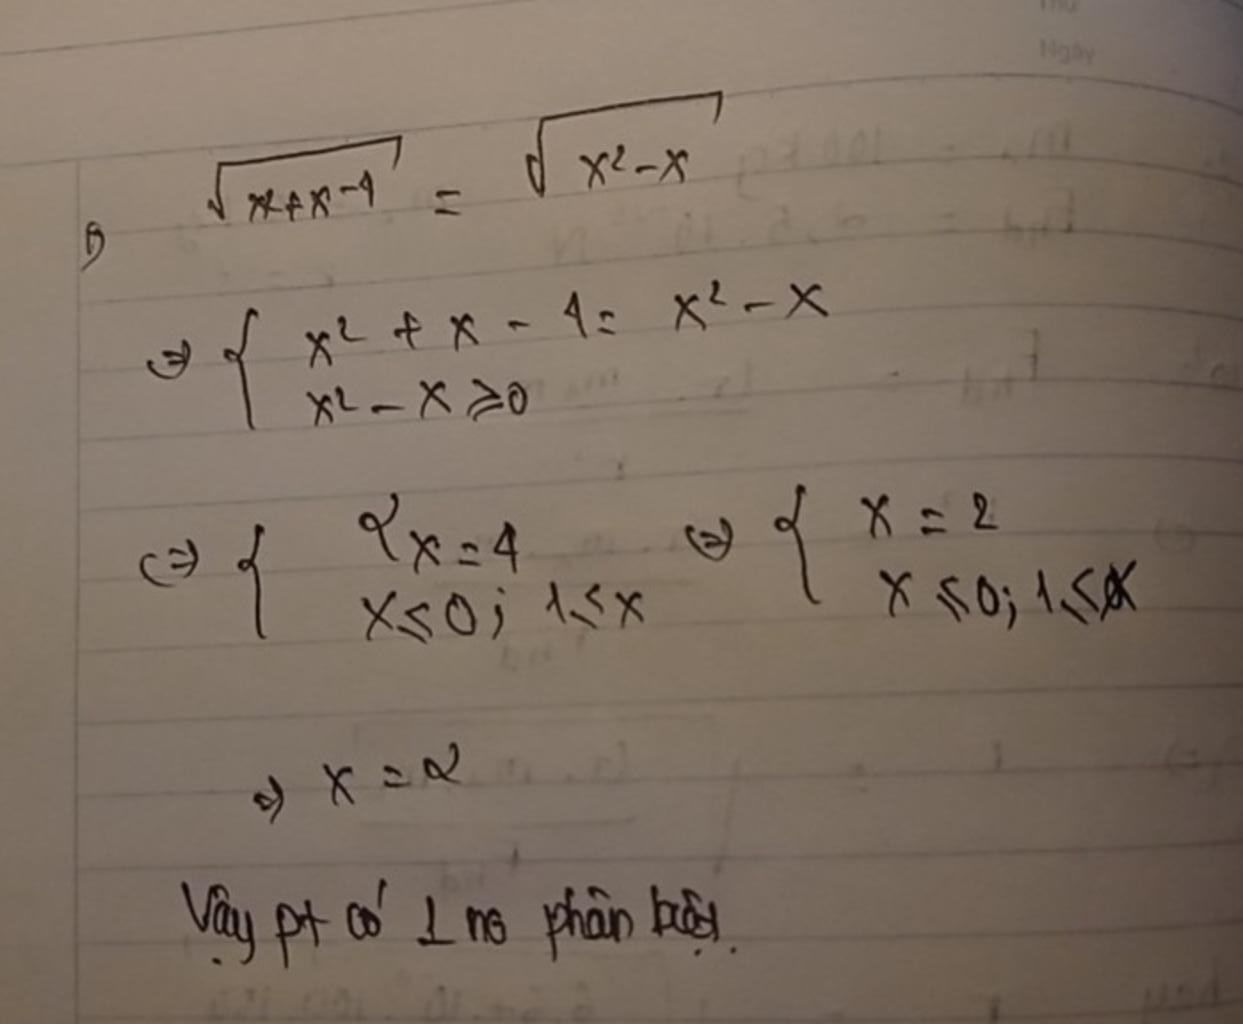 Ngày
1) √(x²+x-4) = √(x²-x)
⇔ { x² + x - 4 = x² - x
x² - x ≥ 0
⇔ { 2x = 4 ⇔ { x = 2
x ≤ 0; 1 ≤ x x ≤ 0; 1 ≤ x
⇒ x = 2
Vậy pt có 1 no phân biệt.